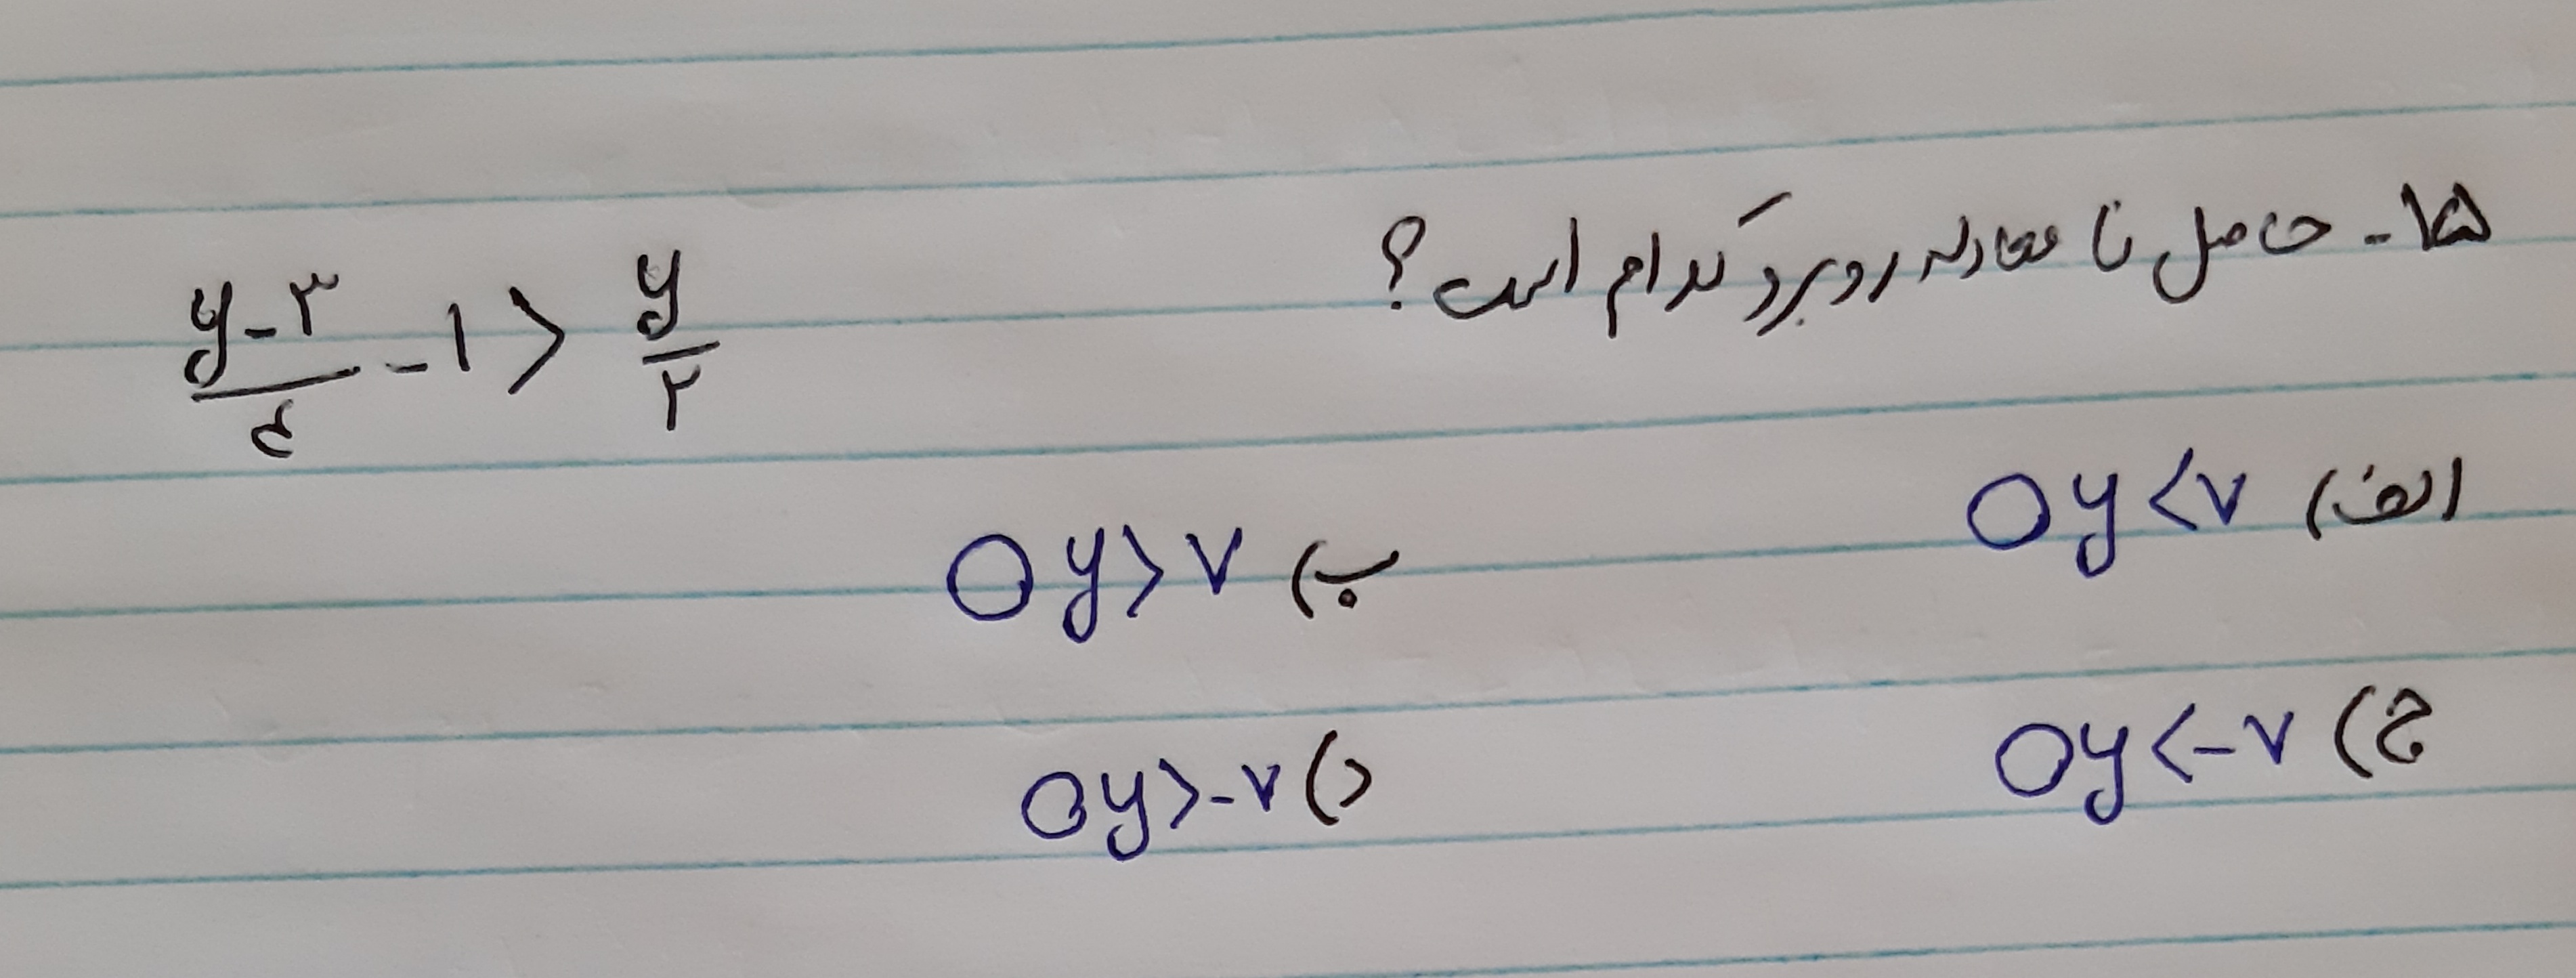 ۱۵- حاصل نامعادله روبرو کدام است؟
(y-۳)/۴ - ۱ > y/۲
الف) y < ۷
ب) y > ۷
ج) y < -۷
د) y > -۷